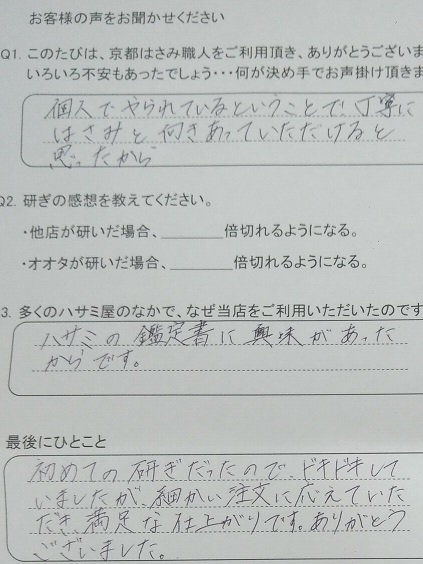 お客様の声をお聞かせください
Q1. このたびは、京都はさみ職人をご利用頂き、ありがとうございま
いろいろ不安もあったでしょう・・・何が決め手でお声掛け頂きま
個人でやられているということで、丁寧に
はさみと向きあっていただけると
思ったから
Q2. 研ぎの感想を教えてください。
・他店が研いだ場合、______倍切れるようになる。
・オオタが研いだ場合、______倍切れるようになる。
3. 多くのハサミ屋のなかで、なぜ当店をご利用いただいたのです
ハサミの鑑定書に興味があった
からです。
最後にひとこと
初めての研ぎだったので、ドキドキして
いましたが、細かい注文に応えていた
だき、満足な仕上がりです。ありがとう
ございました。